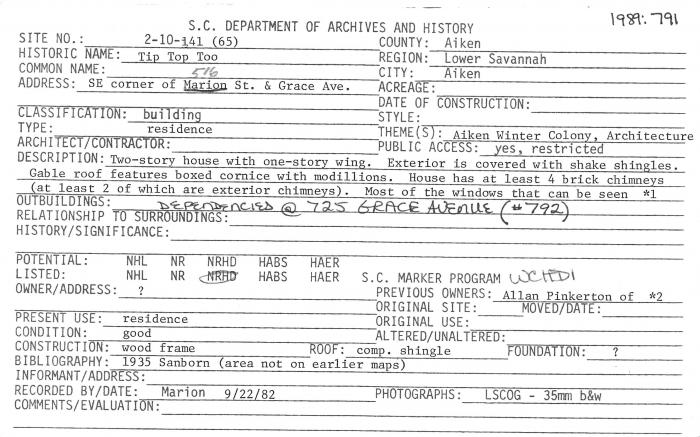 1989: 791
S.C. DEPARTMENT OF ARCHIVES AND HISTORY
SITE NO.: 2-10-141 (65) COUNTY: Aiken
HISTORIC NAME: Tip Top Too REGION: Lower Savannah
COMMON NAME: CITY: Aiken
516
ADDRESS: SE corner of Marion St. & Grace Ave. ACREAGE:
DATE OF CONSTRUCTION:
CLASSIFICATION: building STYLE:
TYPE: residence THEME(S): Aiken Winter Colony, Architecture
ARCHITECT/CONTRACTOR: PUBLIC ACCESS: yes, restricted
DESCRIPTION: Two-story house with one-story wing. Exterior is covered with shake shingles.
Gable roof features boxed cornice with modillions. House has at least 4 brick chimneys
(at least 2 of which are exterior chimneys). Most of the windows that can be seen *1
OUTBUILDINGS: DEPENDENCIES @ 725 GRACE AVENUE (#792)
RELATIONSHIP TO SURROUNDINGS:
HISTORY/SIGNIFICANCE:
POTENTIAL: NHL NR NRHD HABS HAER
LISTED: NHL NR NRHD HABS HAER S.C. MARKER PROGRAM WCHDI
OWNER/ADDRESS: ? PREVIOUS OWNERS: Allan Pinkerton of *2
ORIGINAL SITE: MOVED/DATE:
PRESENT USE: residence ORIGINAL USE:
CONDITION: good ALTERED/UNALTERED:
CONSTRUCTION: wood frame ROOF: comp. shingle FOUNDATION: ?
BIBLIOGRAPHY: 1935 Sanborn (area not on earlier maps)
INFORMANT/ADDRESS:
RECORDED BY/DATE: Marion 9/22/82 PHOTOGRAPHS: LSCOG - 35mm b&w
COMMENTS/EVALUATION: